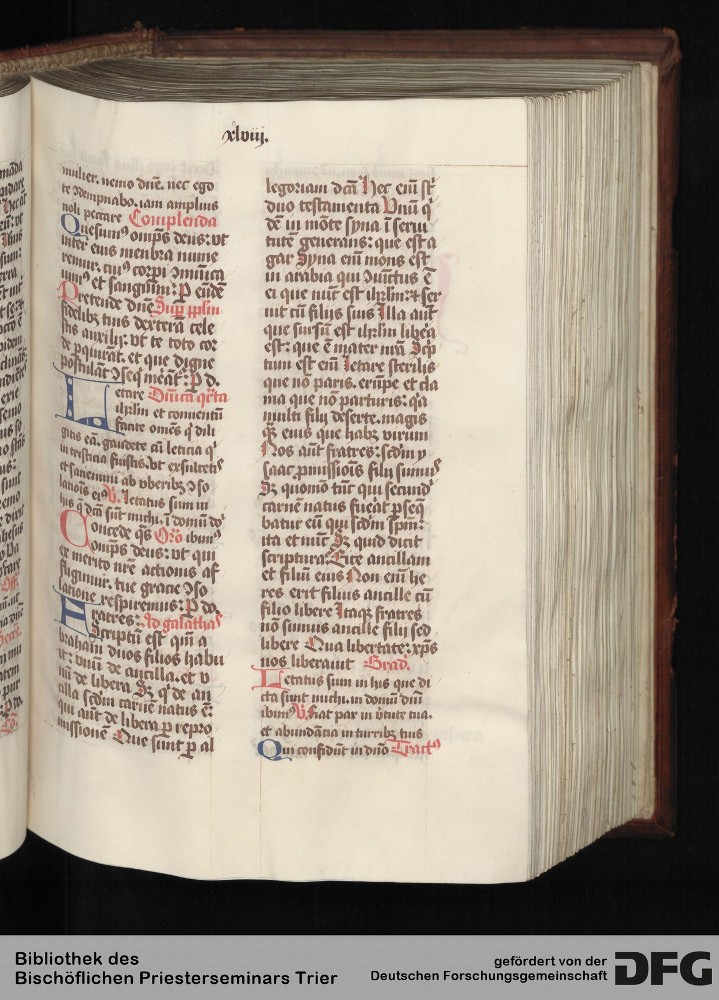 xlviij.
mulier. nemo dn̄e. nec ego
te ꝯdempnabo. iam amplius
noli peccare Complenda
Quesumꝰ omp̄s deus: vt
inter eius menbra nume
remur. cuiꝰ corpi ꝯmūica
mꝰ et sanguini: P eūdē
Pretende dn̄e Suꝑ pplm̄
fidelibꝫ tuis dexterā cele
stis auxilij: vt te toto cor
de ꝑquirāt. et que digne
postulāt ꝯseq̄ meāt: P d.
Letare Dn̄ica qͣrta
ihrlm̄ et conuentū
facite om̄es q̇ dili
gitis eā. gaudete cū leticia q̇
in tristicia fuistis. vt exsultetꝭ
et saciemini ab vberibꝫ ꝯso
lationis vr̄e V. Letatus sum in
his q̄ dc̄a sūt michi. ī domū dō
Concede q̄s Oro ibimꝰ
omp̄s deus: vt qui
ex merito nr̄e actionis af
fligimur. tue gracie ꝯso
latione respiremus: P do.
Fratres: Ad galathaꝭ
Scriptū est qm̄ a
braham duos filios habu
it: vnū de ancilla. et v
nū de libera Sꝫ q̇ de an
cilla scdm̄ carnē natus ē:
qui aūt de libera ꝑ repro
missionē Que sunt ꝑ al
legoriam dc̄a Hec em̄ st̄
duo testamenta Vnū q̇
dē in mōte syna ī serui
tutē generans: que est a
gar Syna em̄ mons est
in arabia qui ꝯiūctus ē
ei que nūc est ihrlm̄: ⁊ ser
uit cū filijs suis Illa aūt
que sursū est ihrlm̄ libera
est: que ē mater nrā Scp̄
tum est em̄ Letare sterilis
que nō paris. erūpe et cla
ma que nō parturis: qͣ
multi filij deserte. magis
qͣꝫ eius que habꝫ virum
Nos aūt fratres: scdm̄ y
saac ꝓmissiōis filij sumꝰ
Sꝫ quomō tūc qui secund
carnē natus fuāt ꝑseq̄
batur eū qui scdm̄ spm̄:
ita et nūc Sꝫ quid dicit
scriptura. Eice ancillam
et filiū eius Non em̄ he
res erit filius ancille cū
filio libere Itaqꝫ fratres
nō sumus ancille filij sed
libere Qua libertate: xp̄s
nos liberauit Grad.
Letatus sum in his que di
cta sunt michi. in domū dn̄i
ibimꝰ V. Fiat pax in v̄tute tua.
et abundācia in turribꝫ tuis
Qui confidūt in dn̄o Tractꝰ
Bibliothek des
Bischöflichen Priesterseminars Trier
gefördert von der
Deutschen Forschungsgemeinschaft
DFG